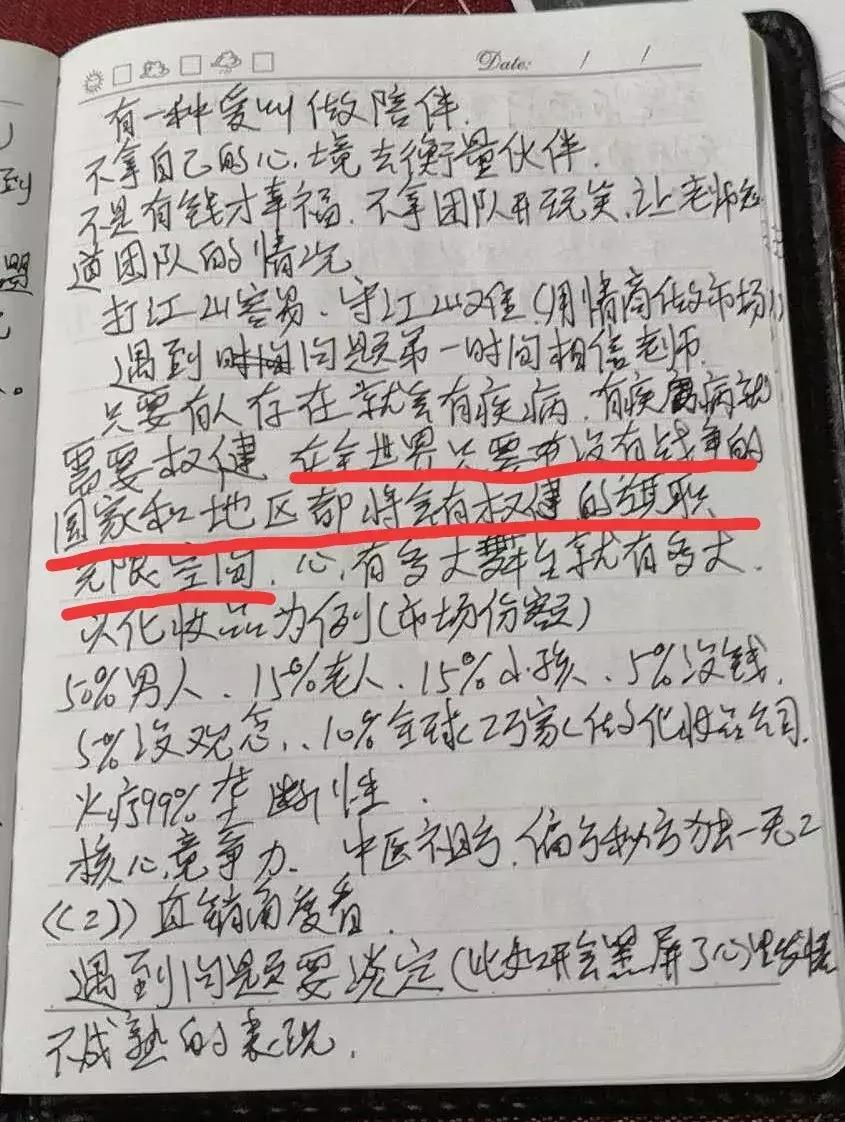 Date: / /
有一种爱叫做陪伴.
不拿自己的心境去衡量伙伴.
不是有钱才幸福.不拿团队开玩笑.让老师知
道团队的情况
打江山容易、守江山难(用情商做市场)
遇到时间问题第一时间相信老师.
只要有人存在就会有疾病.有疾病就
需要权健 在全世界只要没有战争的
国家和地区都将会有权健的旗
无限空间.心有多大舞台就有多大.
以化妆品为例(市场份额)
50%男人、15%老人、15%小孩、5%没钱.
5%没观念..10%全球(2万家)做化妆品公司.
火疗99%垄断性.
核心竞争力. 中医祖方.偏方秘方独一无二
((2))直销角度看.
遇到问题要淡定(比如开会黑屏了心里发慌
不成熟的表现.
到
题